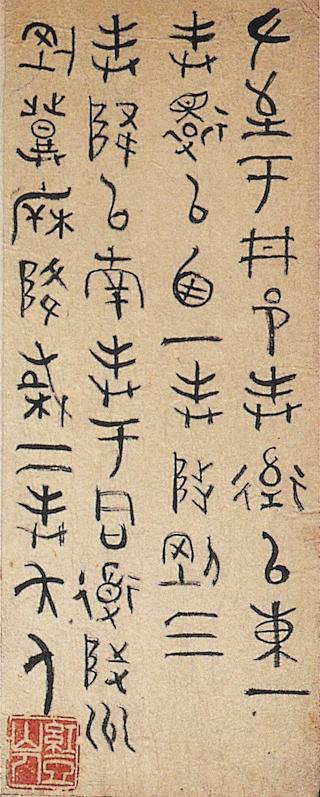 左至于井邑封道以東一
封還以西一封陟剛三
封降以南封于同道陟州
剛登降棫二封夨人
紅豆
山人